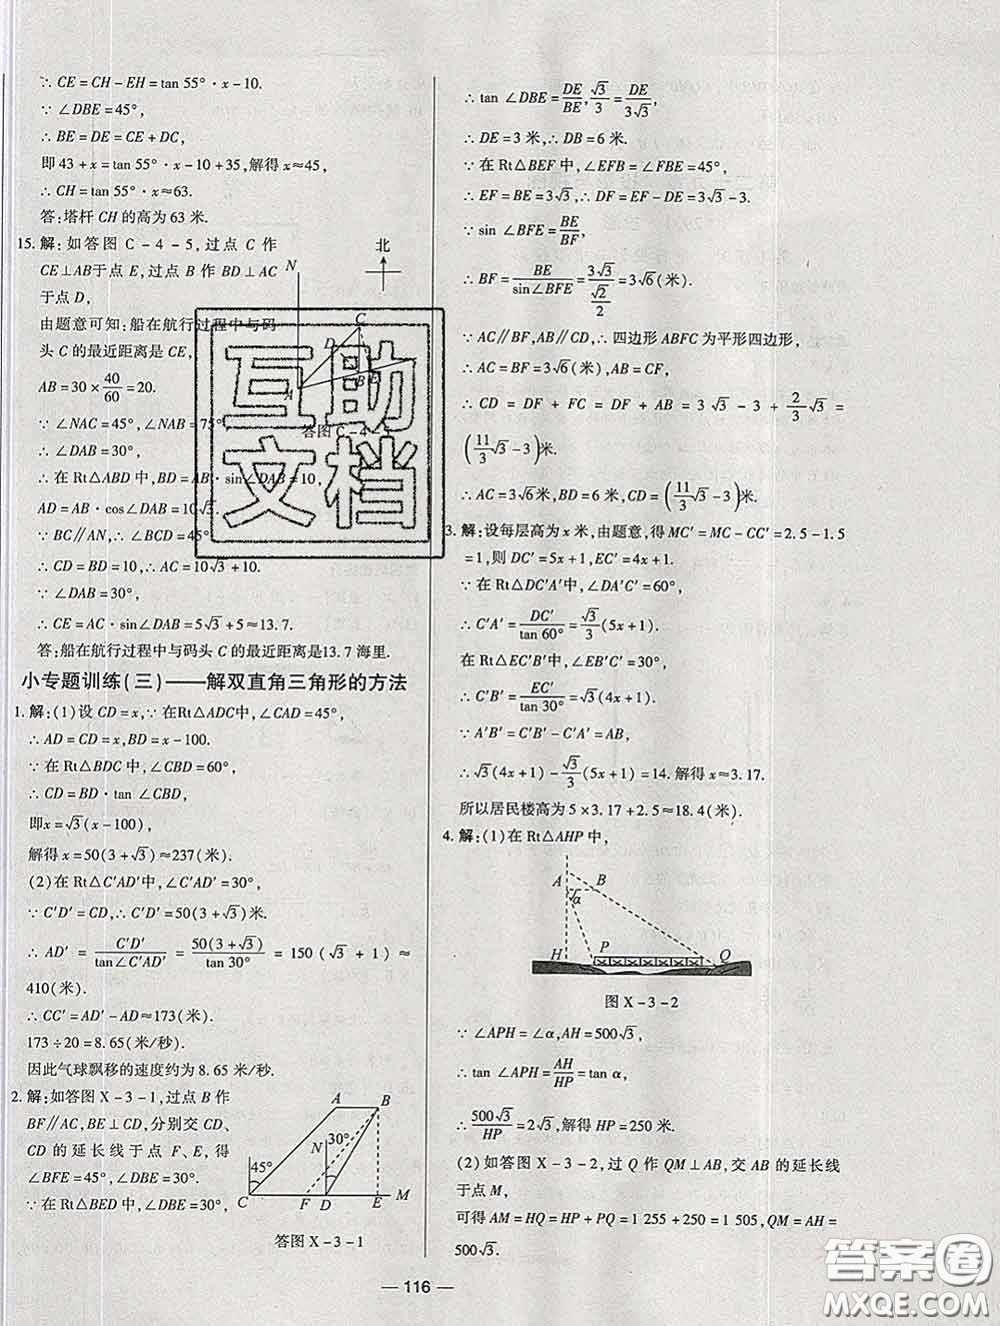 ∵ CE = CH − EH = tan 55° · x − 10.
∵ ∠DBE = 45°,
∴ BE = DE = CE + DC,
即 43 + x = tan 55° · x − 10 + 35, 解得 x ≈ 45,
∴ CH = tan 55° · x ≈ 63.
答: 塔杆 CH 的高为 63 米.
15. 解: 如答图 C - 4 - 5, 过点 C 作
CE ⊥ AB于点 E, 过点 B 作 BD ⊥ AC
于点 D,
由题意可知: 船在航行过程中与码
头 C 的最近距离是 CE,
AB = 30 × 40/60 = 20.
∵ ∠NAC = 45°, ∠NAB = 75°
∴ ∠DAB = 30°,
∴ 在 Rt△ABD 中, BD = AB · sin∠DAB = 10,
AD = AB · cos∠DAB = 10√3.
∵ BC // AN, ∴ ∠BCD = 45°
∴ CD = BD = 10, ∴ AC = 10√3 + 10.
∵ ∠DAB = 30°,
∴ CE = AC · sin∠DAB = 5√3 + 5 ≈ 13.7.
答: 船在航行过程中与码头 C 的最近距离是13.7 海里.
北
N
C
D
B E
A
答图 C - 4 - 5
小专题训练(三)——解双直角三角形的方法
1. 解: (1) 设 CD = x, ∵ 在Rt△ADC中, ∠CAD = 45°,
∴ AD = CD = x, BD = x − 100.
∵ 在 Rt△BDC 中, ∠CBD = 60°,
∴ CD = BD · tan ∠CBD,
即x = √3(x − 100),
解得 x = 50(3 + √3) ≈ 237(米).
(2) 在 Rt△C′AD′中, ∠C′AD′ = 30°,
∵ C′D′ = CD, ∴ C′D′ = 50(3 + √3)米.
∴ AD′ = C′D′/tan∠C′AD′ = 50(3 + √3)/tan 30° = 150 (√3 + 1) ≈
410(米).
∴ CC′ = AD′ − AD ≈ 173(米).
173 ÷ 20 = 8.65(米/秒).
因此气球飘移的速度约为 8.65 米/秒.
2. 解: 如答图 X - 3 - 1, 过点 B 作
BF // AC, BE ⊥ CD, 分别交 CD、
CD 的延长线于点 F、E, 得
∠BFE = 45°, ∠DBE = 30°.
∵ 在 Rt△BED 中, ∠DBE = 30°,
A B
N 30°
45°
C F D E M
答图 X - 3 - 1
∴ tan ∠DBE = DE/BE, √3/3 = DE/3√3,
∴ DE = 3 米, ∴ DB = 6 米.
∵ 在 Rt△BEF 中, ∠EFB = ∠FBE = 45°,
∴ EF = BE = 3√3, ∴ DF = EF − DE = 3√3 − 3.
∵ sin ∠BFE = BE/BF,
∴ BF = BE/sin∠BFE = 3√3/(√2/2) = 3√6(米).
∵ AC // BF, AB // CD, ∴ 四边形 ABFC 为平形四边形,
∴ AC = BF = 3√6(米), AB = CF,
∴ CD = DF + FC = DF + AB = 3√3 − 3 + 2/3√3 =
(11/3√3 − 3)米.
∴ AC = 3√6米, BD = 6 米, CD = (11/3√3 − 3)米.
3. 解: 设每层高为 x 米, 由题意, 得 MC′ = MC − CC′ = 2.5 − 1.5
= 1, 则 DC′ = 5x + 1, EC′ = 4x + 1.
∵ 在 Rt△DC′A′中, ∠DA′C′ = 60°,
∴ C′A′ = DC′/tan 60° = √3/3(5x + 1).
在 Rt△EC′B′中, ∠EB′C′ = 30°,
∴ C′B′ = EC′/tan 30° = √3(4x + 1).
∵ A′B′ = C′B′ − C′A′ = AB,
∴ √3(4x + 1) − √3/3(5x + 1) = 14. 解得 x ≈ 3.17.
所以居民楼高为 5 × 3.17 + 2.5 ≈ 18.4(米).
4. 解: (1) 在 Rt△AHP 中,
A B
α
H P Q
图 X - 3 - 2
∵ ∠APH = ∠α, AH = 500√3,
∴ tan ∠APH = AH/HP = tan α,
∴ 500√3/HP = 2√3, 解得 HP = 250 米.
(2) 如答图 X - 3 - 2, 过 Q 作 QM ⊥ AB, 交 AB 的延长线
于点 M,
可得 AM = HQ = HP + PQ = 1 255 + 250 = 1 505, QM = AH =
500√3.
— 116 —
互助
文档
答案圈
MXQE.COM